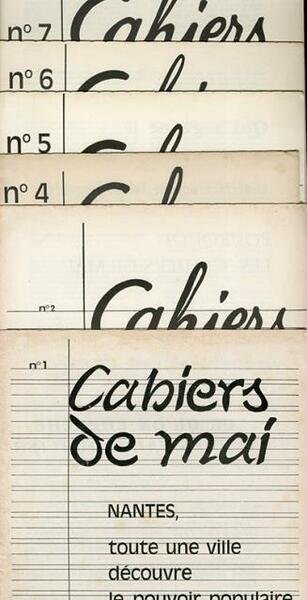 n° 7 Cahiers
n° 6
n° 5
n° 4
n° 2 Cahiers
n° 1
Cahiers
de mai
NANTES,
toute une ville
découvre
le pouvoir populaire